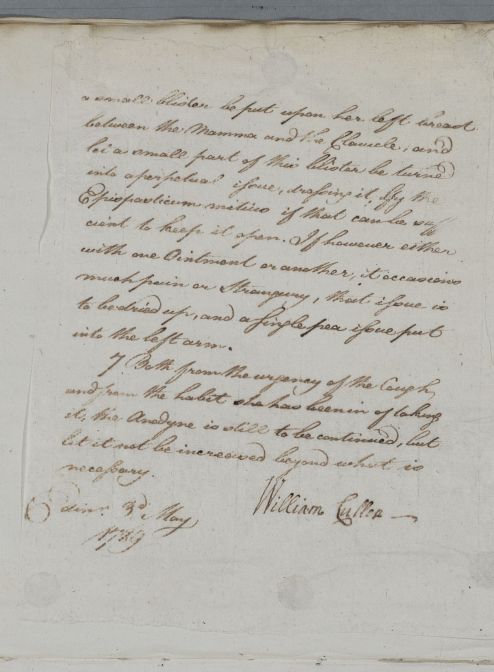 a small blister be put upon her left breast
between the Mamma and the Clavicle, and
let a small part of this blister be turned
into a perpetual issue, dressing it by the
Epispasticum mitius if that can be suff
cient to keep it open. If however either
with one Ointment or another, it occasions
much pain or Strangury, that issue is
to be dried up, and a single pea issue put
into the left arm.
7 Both from the urgency of the Cough,
and from the habit she has been in of taking
it, the Anodyne is still to be continued, but
let it not be increased beyond what is
necessary.
William Cullen
Edinr. 3d. May
1789